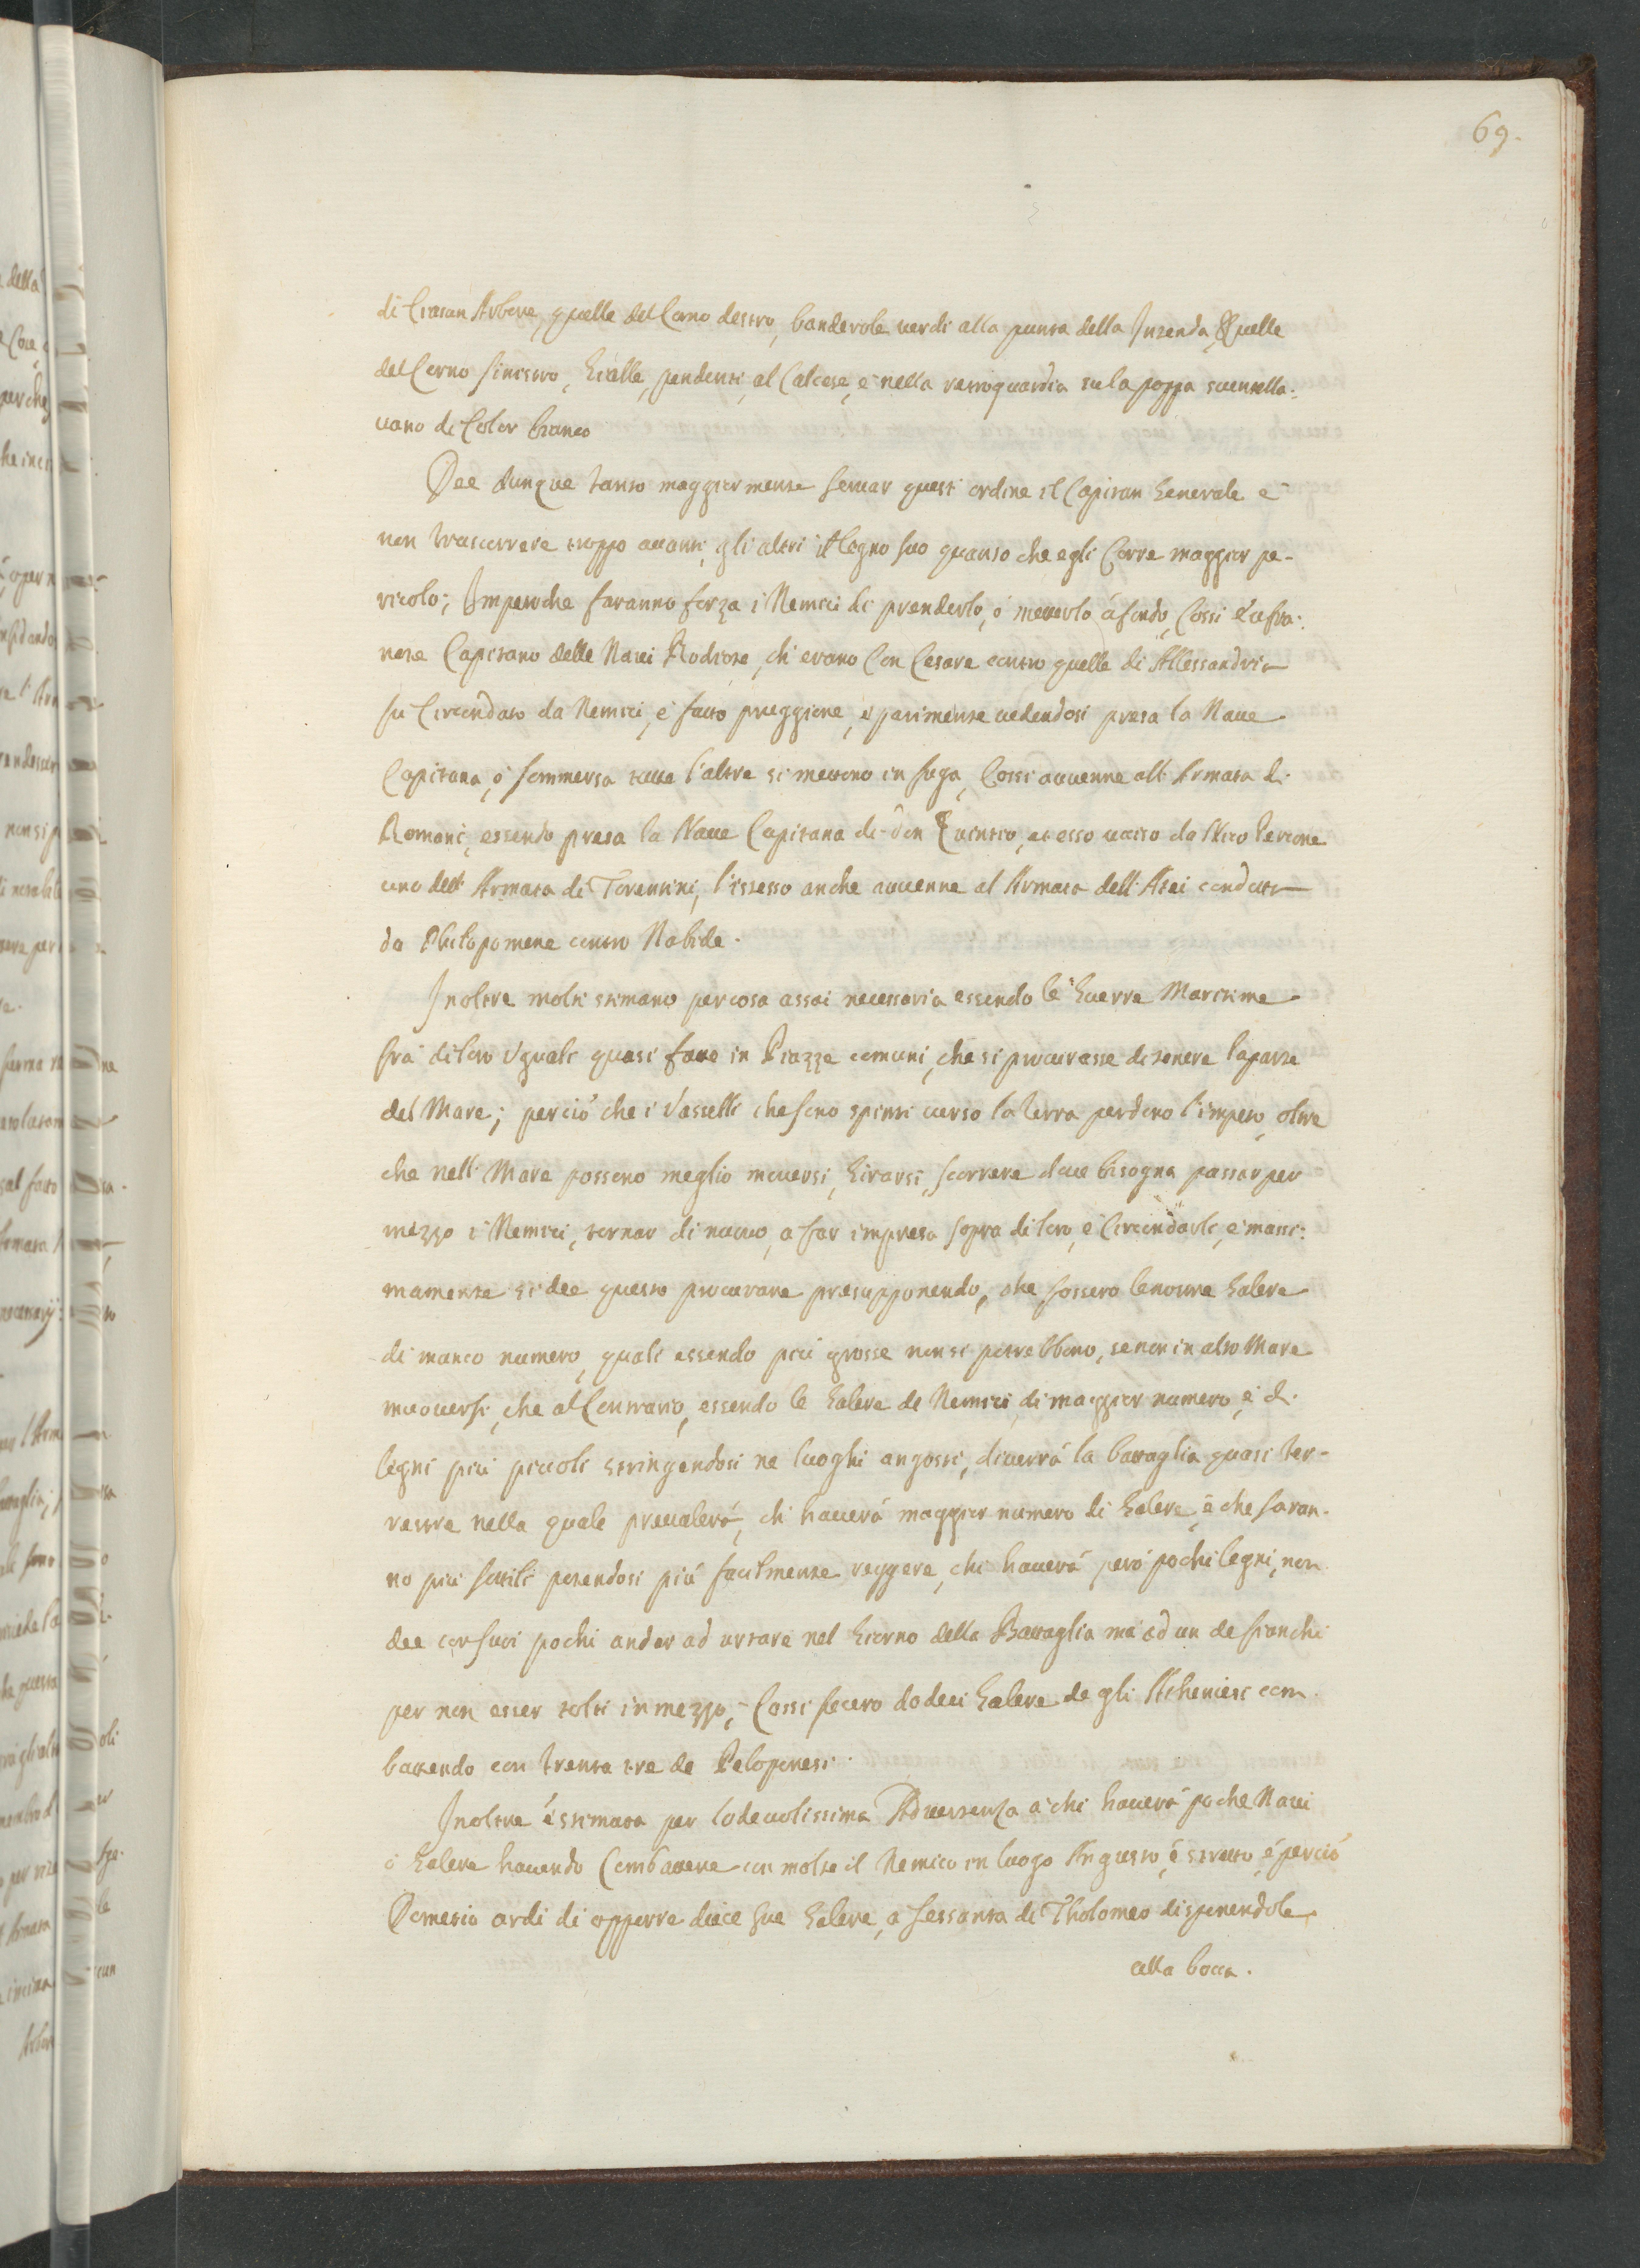 69.
di Ciascun Arbore, quelle del Corno destro, banderole verdi alla punta della Intenda, & quelle
del Corno sinistro, Gialle, pendenti, al Calcese, e nella retroguardia su la poppa suentella-
uano di Color bianco
Dee dunque tanto maggiormente seruar questi ordine il Capitan Generale e
non trascorrere troppo auanti gli altri il legno suo quanto che egli Corre maggior pe-
ricolo; Imperoche faranno forza i Nemici di prenderlo, ó metterlo á fondo, Cossi
nore Capitano delle Naui Rodiote, ch'erano Con Cesare contro quelle di Allessandria
fu Circondato da Nemici, e fatto preggione, e parimente uedendosi presa la Naue
Capitana, ó sommersa tutte l'altre si mettono in fuga, Cossi auuenne all' Armata di
Romani, essendo presa la Naue Capitana di don Quintio, et esso uciso da Nico Percone
uno dell' Armata di Tarentini, l'istesso anche auuenne al Armata dell' condutta
da Philopomene contro Nabide.
Inoltre molti stimano per cosa assai necessaria essendo le Guerre Maritime
frá di loro Uguali quasi fatte in Piazze comuni, che si procurasse di tenere la parte
del Mare; perció che i Vasselli che sono spinti uerso la terra perdono l'impeto, oltre
che nell' Mare possono meglio mouersi, Girarsi, scorrere doue bisogna passar per
mezzo i Nemici, tornar di nuouo, a far impresa sopra di loro, e Circondarli, e massi-
mamente si dee questo procurare presupponendo, che fossero le nostre Galere
di manco numero, quali essendo piú grosse non si potrebbono, se non in alto Mare
muouersi, che al Contrario, essendo le Galere de Nemici di maggior numero, e di
legni piú piccoli stringendosi ne luoghi angosti, diuerrá la battaglia quasi ter-
restre nella quale preualerá, chi hauerá maggior numero di Galere, e che saran-
no piú sottili potendosi piú facilmente reggere, chi hauerá peró pochi legni, non
dee con suoi pochi andar ad urtare nel Giorno della Battaglia má ad un de fianchi
per non esser tolti in mezzo, Cossi fecero dodeci Galere de gli Atheniesi com-
battendo con trenta tre de Peloponesi.
Inoltre é stimata per lodeuolissima Aduertenza á chi hauerá poche Naui
ó Galere hauendo Combattere con molte il Nemico in luogo Angusto, é stretto, é perció
Demetio ardi di opporre diece sue Galere, a sessanta di Tholomeo disponendole
alla bocca.